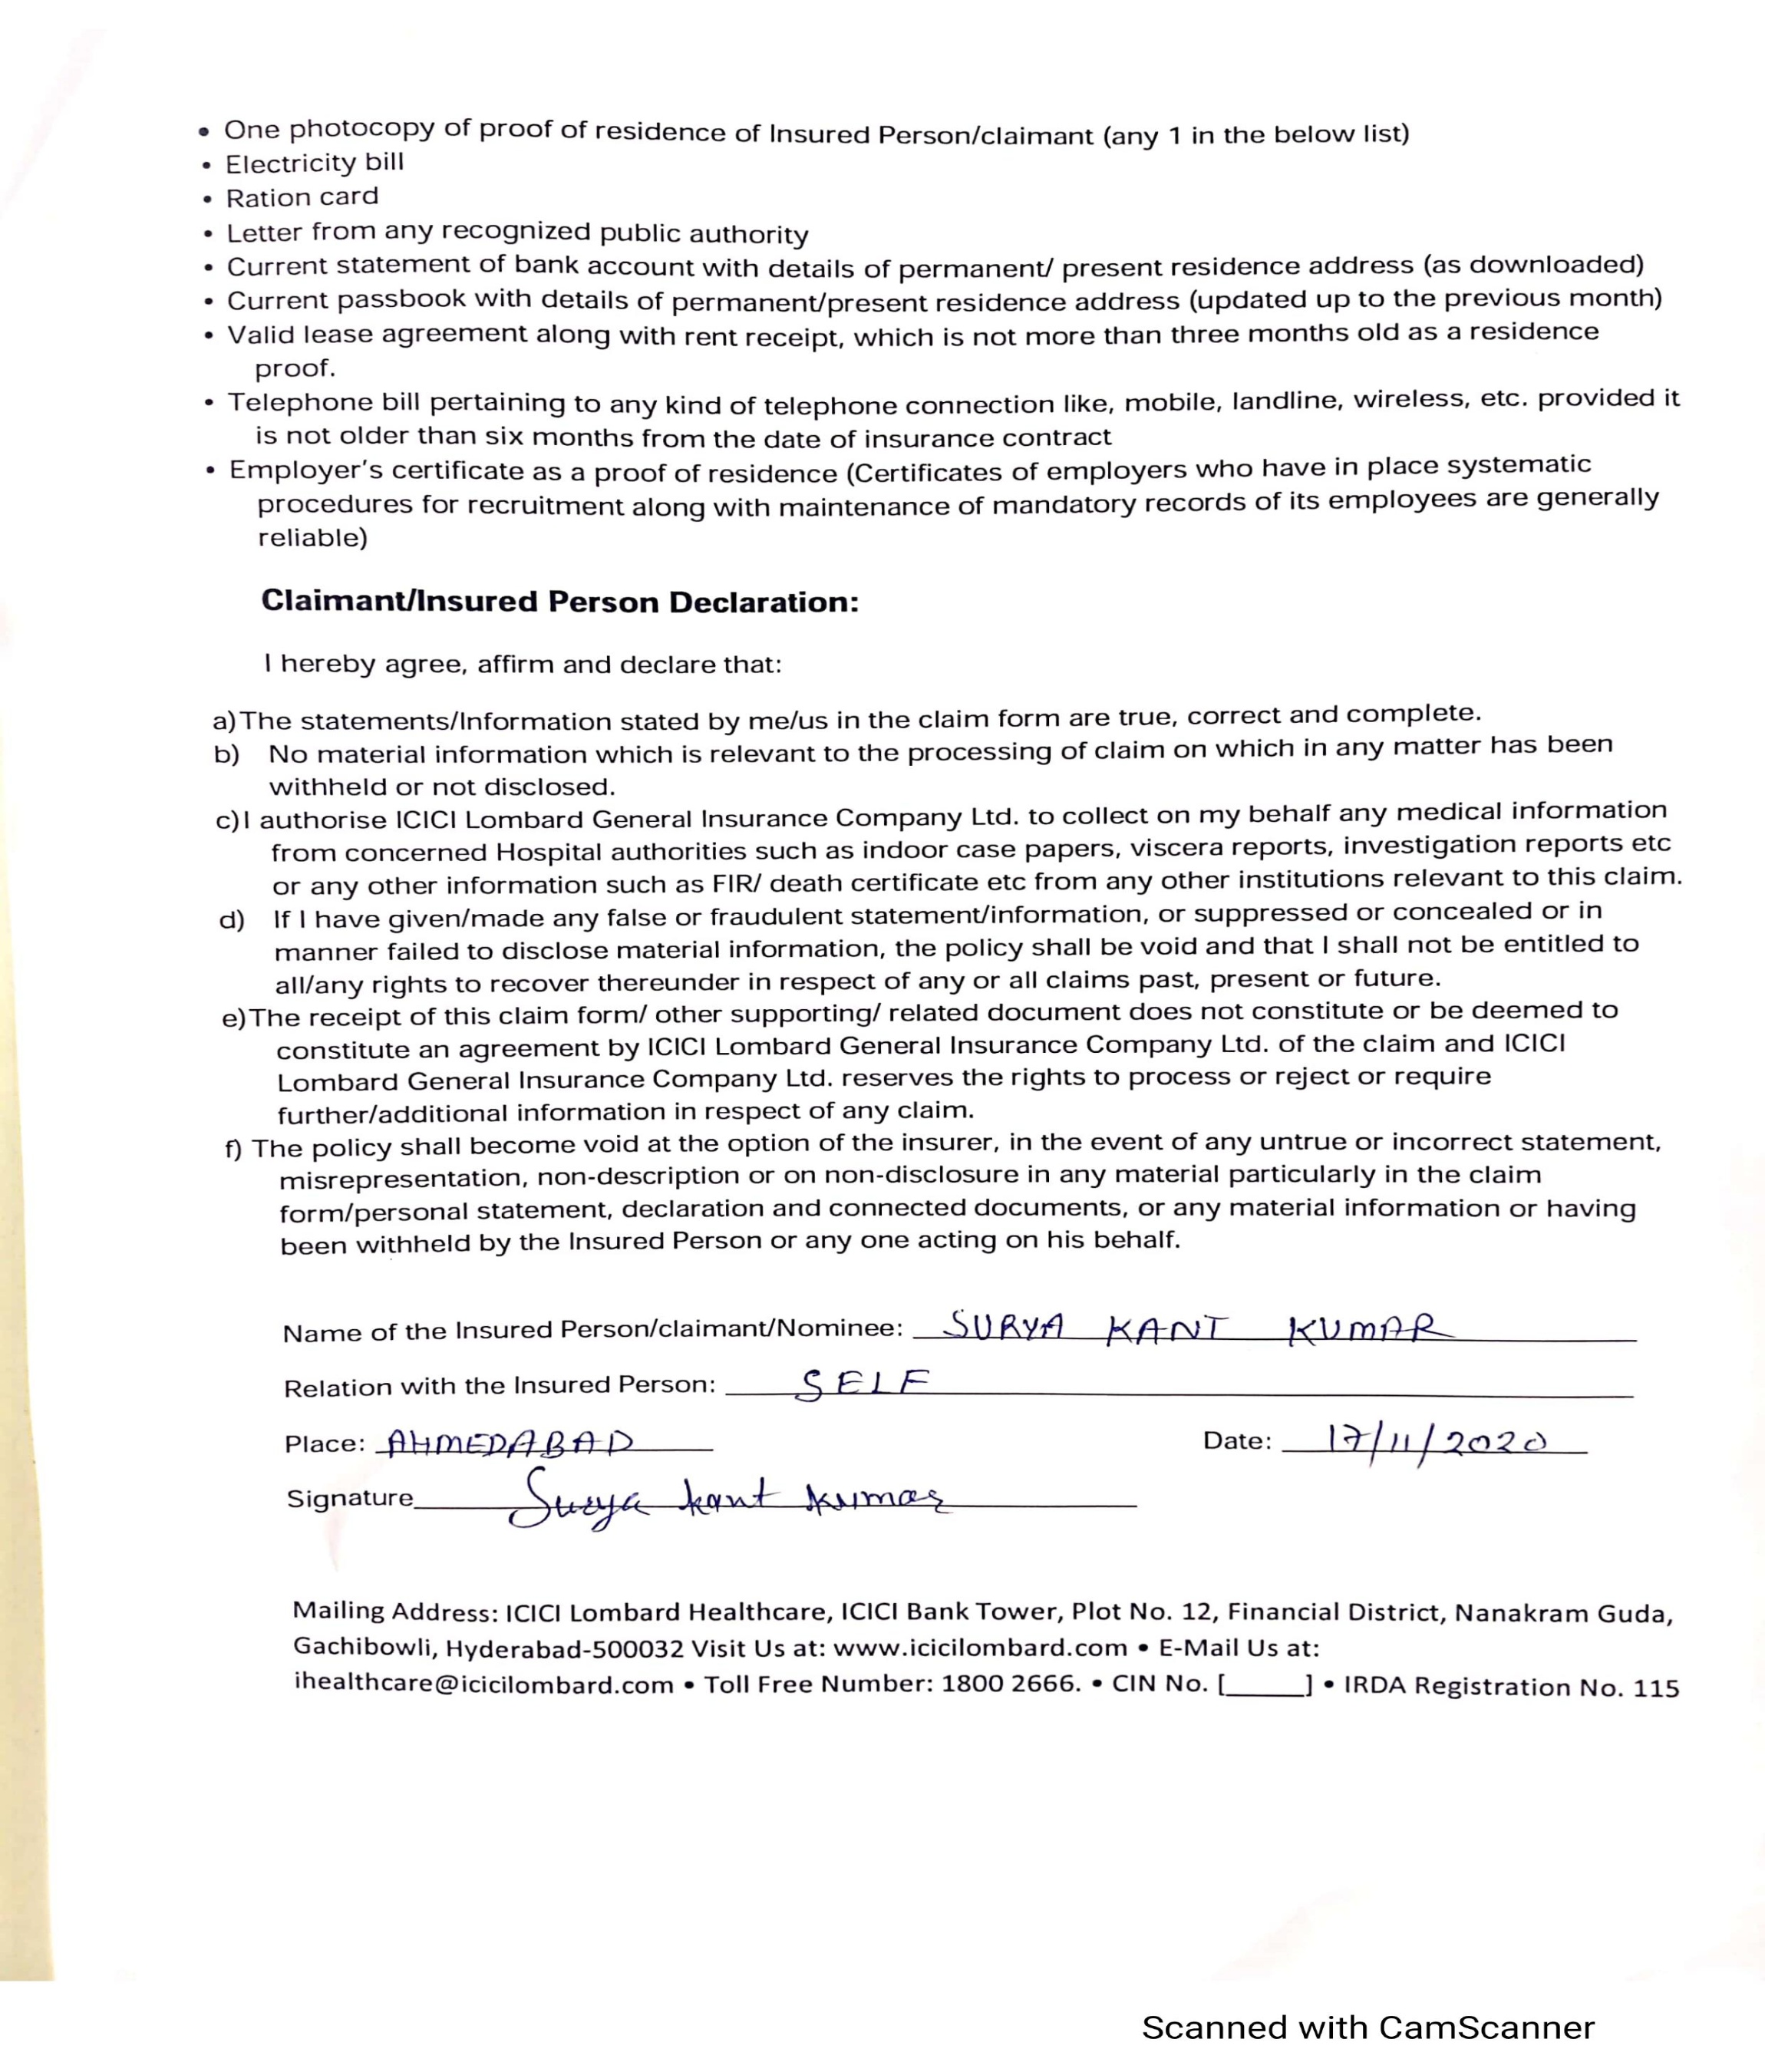 • One photocopy of proof of residence of Insured Person/claimant (any 1 in the below list)
• Electricity bill
• Ration card
• Letter from any recognized public authority
• Current statement of bank account with details of permanent/ present residence address (as downloaded)
• Current passbook with details of permanent/present residence address (updated up to the previous month)
• Valid lease agreement along with rent receipt, which is not more than three months old as a residence
proof.
• Telephone bill pertaining to any kind of telephone connection like, mobile, landline, wireless, etc. provided it
is not older than six months from the date of insurance contract
• Employer's certificate as a proof of residence (Certificates of employers who have in place systematic
procedures for recruitment along with maintenance of mandatory records of its employees are generally
reliable)
Claimant/Insured Person Declaration:
I hereby agree, affirm and declare that:
a) The statements/Information stated by me/us in the claim form are true, correct and complete.
b) No material information which is relevant to the processing of claim on which in any matter has been
withheld or not disclosed.
c) I authorise ICICI Lombard General Insurance Company Ltd. to collect on my behalf any medical information
from concerned Hospital authorities such as indoor case papers, viscera reports, investigation reports etc
or any other information such as FIR/ death certificate etc from any other institutions relevant to this claim.
d) If I have given/made any false or fraudulent statement/information, or suppressed or concealed or in
manner failed to disclose material information, the policy shall be void and that I shall not be entitled to
all/any rights to recover thereunder in respect of any or all claims past, present or future.
e) The receipt of this claim form/ other supporting/ related document does not constitute or be deemed to
constitute an agreement by ICICI Lombard General Insurance Company Ltd. of the claim and ICICI
Lombard General Insurance Company Ltd. reserves the rights to process or reject or require
further/additional information in respect of any claim.
f) The policy shall become void at the option of the insurer, in the event of any untrue or incorrect statement,
misrepresentation, non-description or on non-disclosure in any material particularly in the claim
form/personal statement, declaration and connected documents, or any material information or having
been withheld by the Insured Person or any one acting on his behalf.
Name of the Insured Person/claimant/Nominee: SURYA KANT KUMAR
Relation with the Insured Person: SELF
Place: AHMEDABAD Date: 17/11/2020
Signature Surya kant kumar
Mailing Address: ICICI Lombard Healthcare, ICICI Bank Tower, Plot No. 12, Financial District, Nanakram Guda,
Gachibowli, Hyderabad-500032 Visit Us at: www.icicilombard.com • E-Mail Us at:
ihealthcare@icicilombard.com • Toll Free Number: 1800 2666. • CIN No. [_____] • IRDA Registration No. 115
Scanned with CamScanner